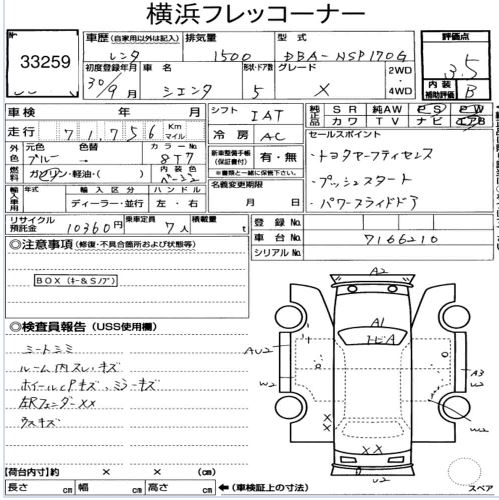 横浜フレッコーナー
No.
33259
車歴 (自家用以外は記入)
レンタ
排気量
1500
型式
DBA-NSP170G
評価点
3.5
初度登録年月
30年9月
車名
シエンタ
形状・ドア数
5
グレード
X
2WD
4WD
内装
補助評価
B
車検 年 月
シフト
IAT
純正品
SR 純AW PS PW
カワ TV ナビ エアB
走行 71,756 Km マイル
冷房 AC
セールスポイント
外色
元色
ブルー
色替
→
カラーNo.
8T7
新車整備手帳
(保証書付)
有・無
※書類と一緒に保管下さい。
・トヨタセーフティセンス
燃料
ガソリン・軽油・( )
内装色
ベージュ
名義変更期限
月 日
・プッシュスタート
輸入車用
年式
輸入区分
ディーラー・並行
ハンドル
左・右
・パワースライドドア
リサイクル預託金
10360円
乗車定員
7人
積載量
t
登録No.
車台No.
7166210
シリアルNo.
◎注意事項 (修復・不具合箇所および状態等)
BOX(キー&Sノブ)
A2
A1
トビA
AU2
W2
A3
U2
W2
XX
U2
スペア
◎検査員報告 (USS使用欄)
シートシミ
ルーム内スレ・キズ
ホイールcPキズ、ミラーキズ
左Rフェンダー××
ウスキズ
【荷台内寸】約 × × (cm)
長さ cm 幅 cm 高さ cm ←(車検証上の寸法)